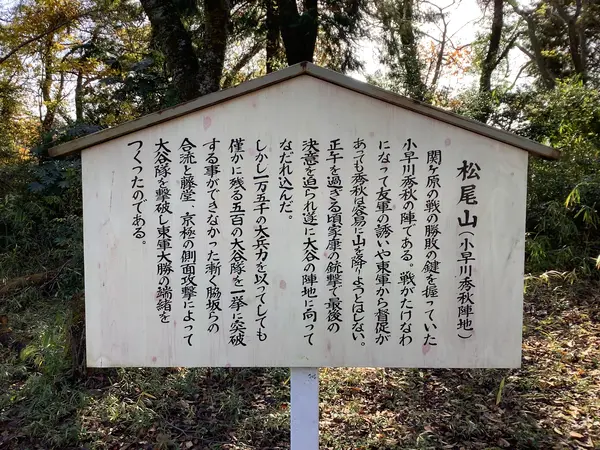 松尾山（小早川秀秋陣地）
関ヶ原の戦の勝敗の鍵を握っていた
小早川秀秋の陣である。戦がたけなわ
になって友軍の誘いや東軍から督促が
あっても秀秋は容易に山を降りようとはしない。
正午を過ぎる頃家康の銃撃で最後の
決意を迫られ遂に大谷の陣地に向って
なだれ込んだ。
しかし一万五千の大兵力を以ってしても
僅かに残る五百の大谷隊を一挙に突破
する事ができなかった漸く脇坂らの
合流と藤堂、京極の側面攻撃によって
大谷隊を撃破し東軍大勝の端緒を
つくったのである。